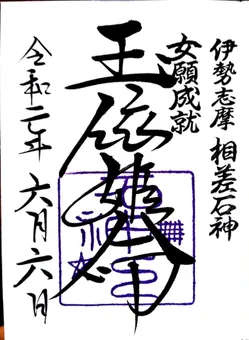 伊勢志摩 相差石神
女願成就
玉依姫命
令和元年六月六日